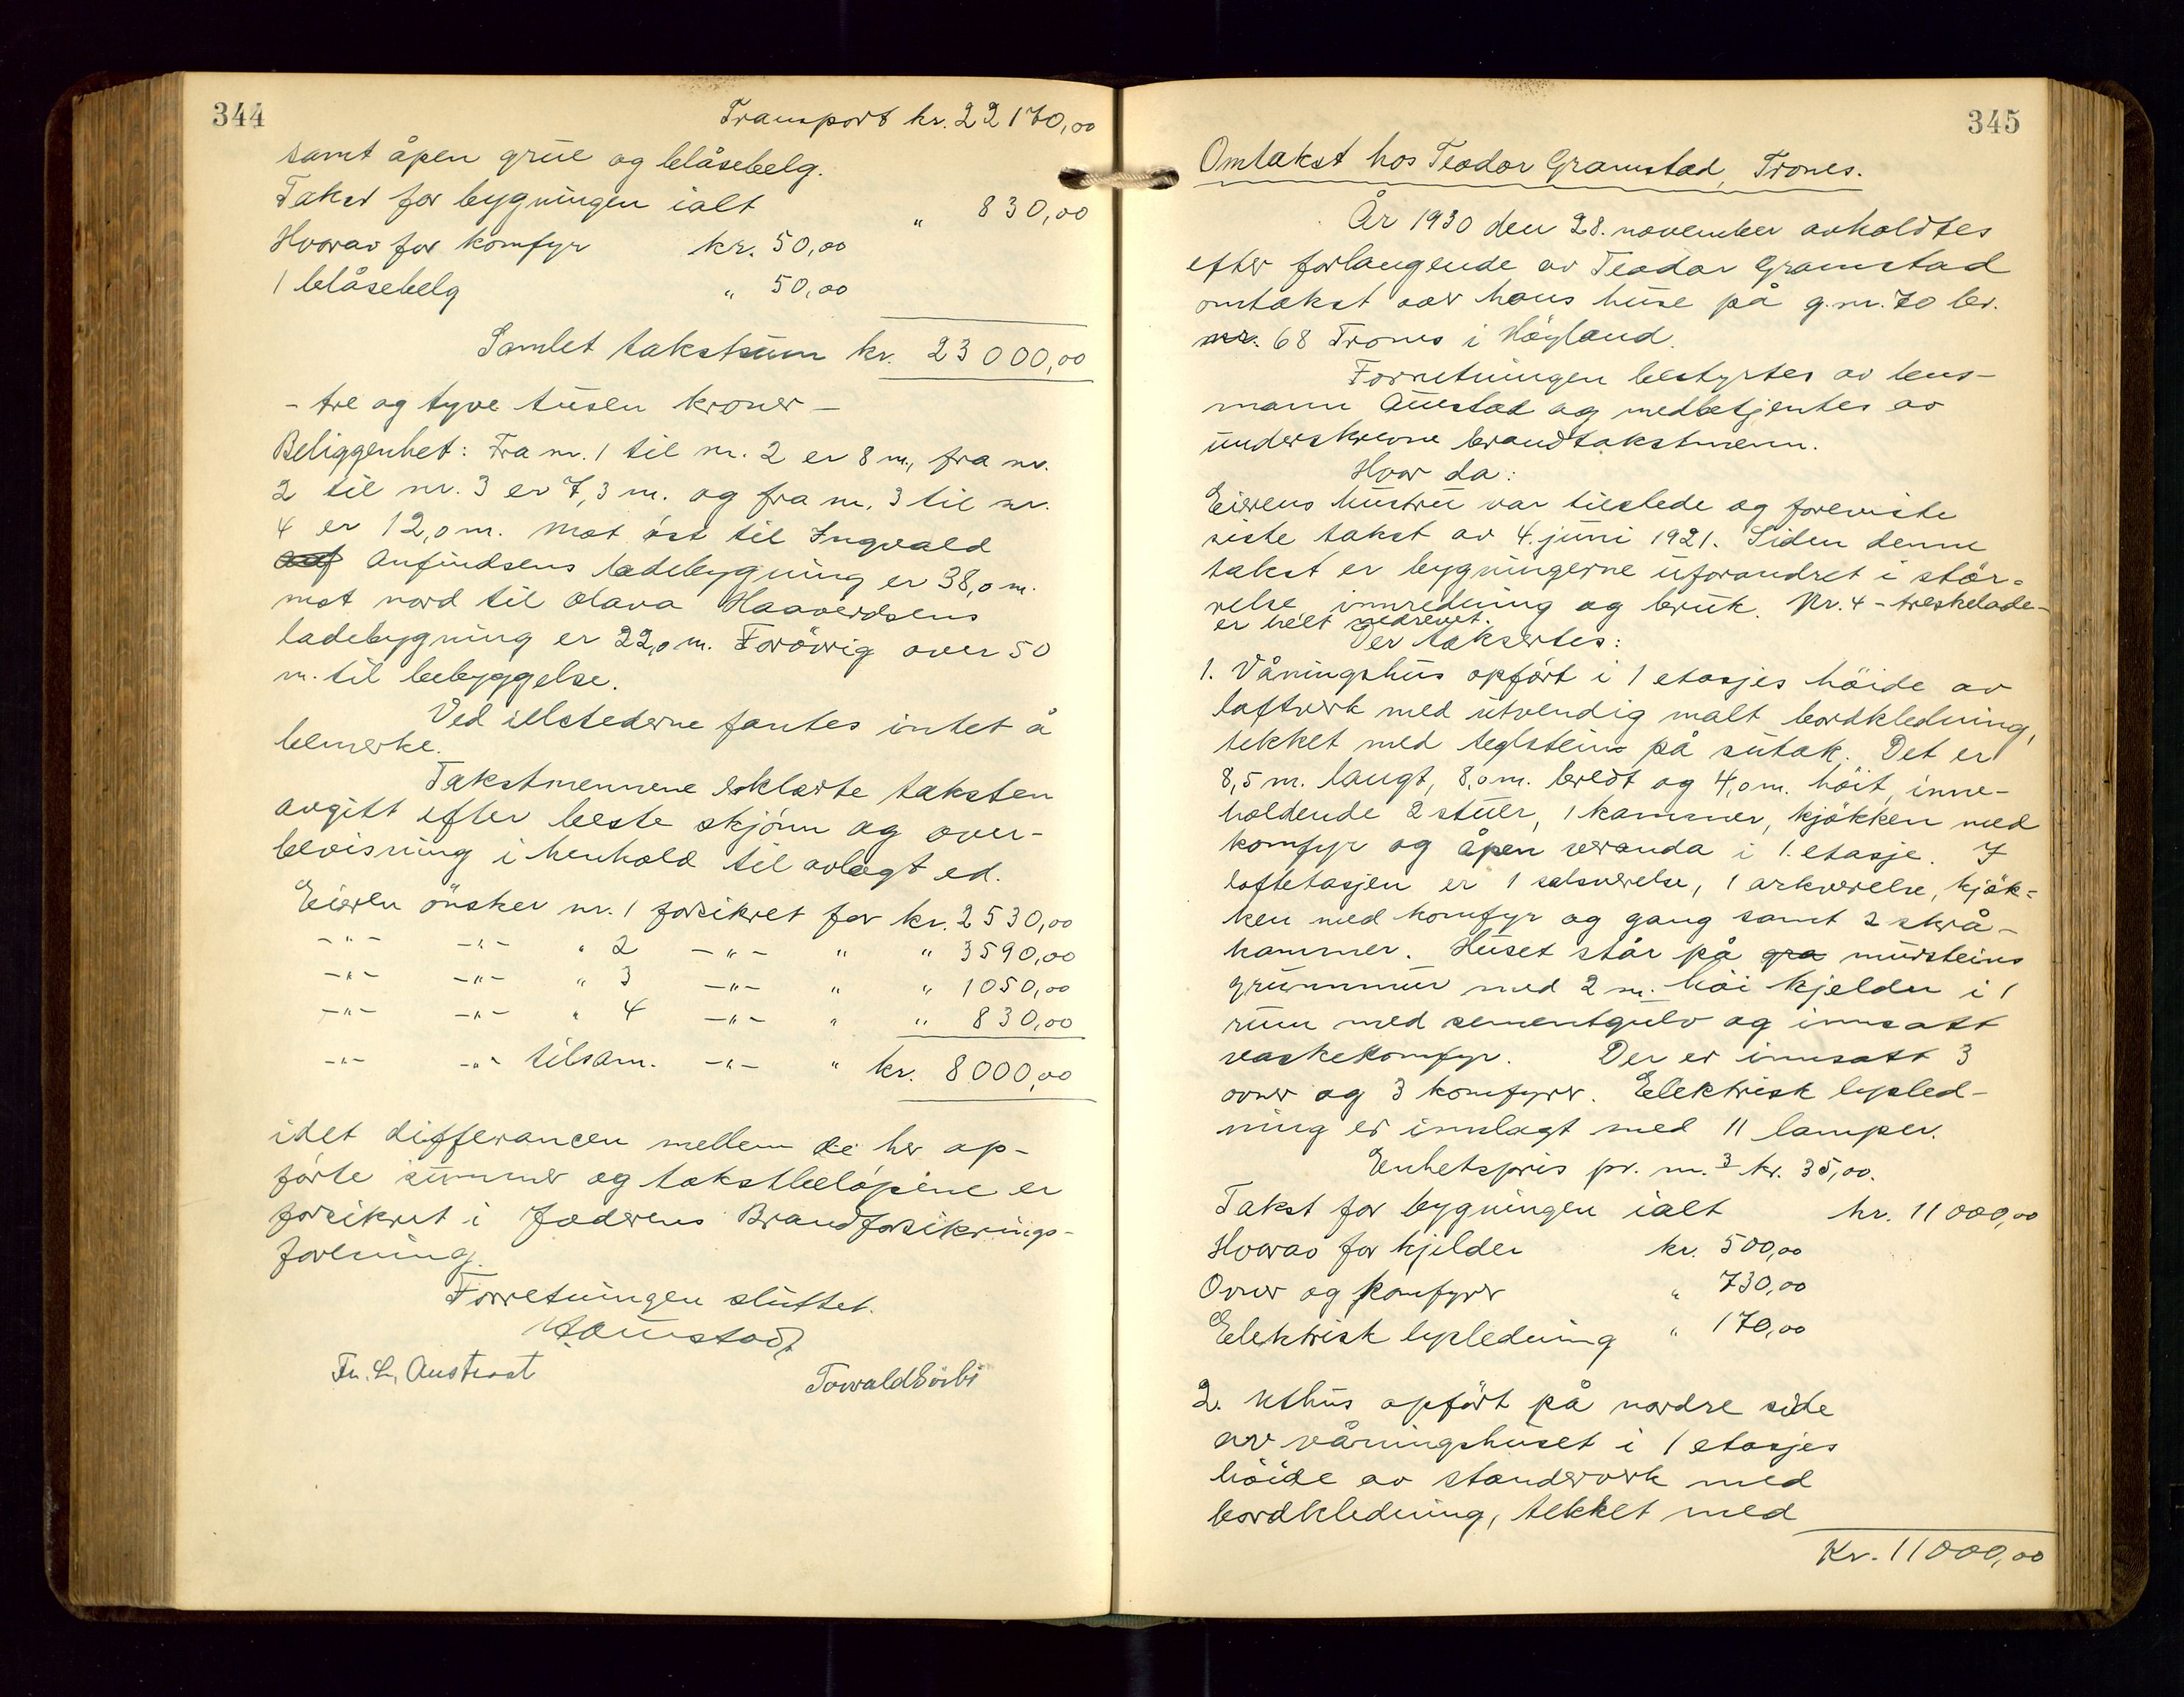 344
Transport kr. 22170,00
samt åpen grue og blåsebelg.
Takst for bygningen ialt " 830,00
Hvorav for komfyr kr. 50,00
1 blåsebelg " 50,00
Samlet takstsum kr. 23000,00
- tre og tyve tusen kroner -
Beliggenhet: Fra nr. 1 til nr. 2 er 8 m., fra nr.
2 til nr. 3 er 7,3 m. og fra nr. 3 til nr.
4 er 12,0 m. Mot øst til Ingvald
Anfindsens ladebygning er 38,0 m.
mot nord til Olava Haaverdsens
ladebygning er 22,0 m. Forövrig over 50
m. til bebyggelse.
Ved illstederne fantes intet å
bemerke.
Takstmennene erklærte taksten
avgitt efter beste skjönn og over-
bevisning i henhold til avlagt ed.
Eieren önsker nr. 1 forsikret for kr. 2530,00
-"- -"- " 2 -"- " " 3590,00
-"- -"- " 3 -"- " " 1050,00
-"- -"- " 4 -"- " " 830,00
-"- -"- tilsam. -"- " kr. 8000,00
idet differancen mellem de her op-
förte summer og takstbelöpene er
forsikret i Jæderens Brandforsikrings-
forening.
Forretningen sluttet.
Fr. L. Austraat Torvald Sörbö
345
Omtakst hos Teodor Gramstad, Trones.
År 1930 den 28. november avholdtes
efter forlangende av Teodor Gramstad
omtakst over hans huse på g.nr. 70 br.
nr. 68 Trones i Höyland.
Forretningen bestyrtes av lens-
mann Aurstad og medbetjentes av
underskrevne brandtakstmenn.
Hvor da:
Eierens hustru var tilstede og foreviste
siste takst av 4. juni 1921. Siden denne
takst er bygningerne uforandret i stör-
relse, innredning og bruk. Nr. 4 - treskelade-
er helt nedrevet.
Der taksertes:
1. Våningshus opfört i 1 etasjes höide av
loftverk med utvendig malt bordkledning,
tekket med teglstein på sutak. Det er
8,5 m. langt, 8,0 m. bredt og 4,0 m. höit, inne-
holdende 2 stuer, 1 kammer, kjökken med
komfyr og åpen veranda i 1. etasje. I
loftetasjen er 1 salsværelse, 1 arkværelse, kjök-
ken med komfyr og gang samt 2 skrå-
kammer. Huset står på gra mursteins
grunnmur med 2 m. höi kjelder i 1
rum med sementgulv og innsatt
vaskekomfyr. Der er innsatt 3
ovner og 3 komfyrer. Elektrisk lysled-
ning er innlagt med 11 lamper.
Enhetspris pr. m.3 kr. 35,00.
Takst for bygningen ialt kr. 11000,00
Hvorav for kjelder kr. 500,00
Ovner og komfyrer " 730,00
Elektrisk lysledning " 170,00
2. Uthus opfört på nordre side
av våningshuset i 1 etasjes
höide av stenderverk med
bordkledning, tekket med
Kr. 11000,00